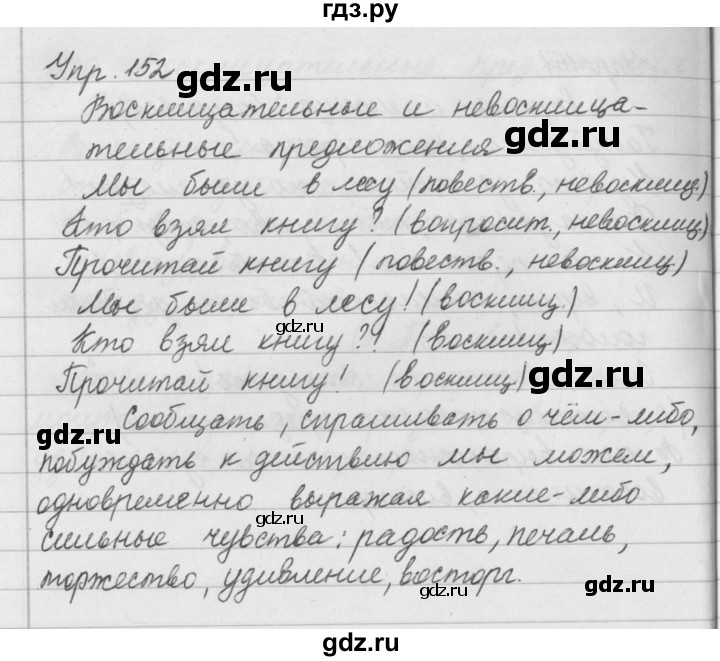 гдз.ру
Упр. 152
gdz.ru
Восклицательные и невосклица-
тельные предложения
gdz.ru
Мы были в лесу (повеств., невосклиц.)
Кто взял книгу? (вопросит., невосклиц.)
Прочитай книгу (повеств., невосклиц)
Мы были в лесу! (восклиц)
gdz.ru
Кто взял книгу?! (восклиц)
Прочитай книгу! (восклиц)
gdz.ru
Сообщать, спрашивать о чём-либо,
gdz.ru
побуждать к действию мы можем,
одновременно выражая какие-либо
gdz.ru
сильные чувства: радость, печаль,
торжество, удивление, восторг.
gdz.ru
gdz.ru